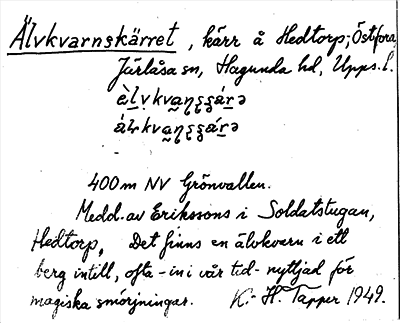 Älvkvarnskärret, kärr å Hedtorp, Östfora,
Järlåsa sn, Hagunda hd, Upps. l.
400 m NV Grönvallen.
Medd. av Erikssons i Soldatstugan,
Hedtorp, Det finns en älvkvarn i ett
berg intill, ofta - in i vår tid - nyttjad för
magiska smörjningar. K.-H. Tapper 1949.